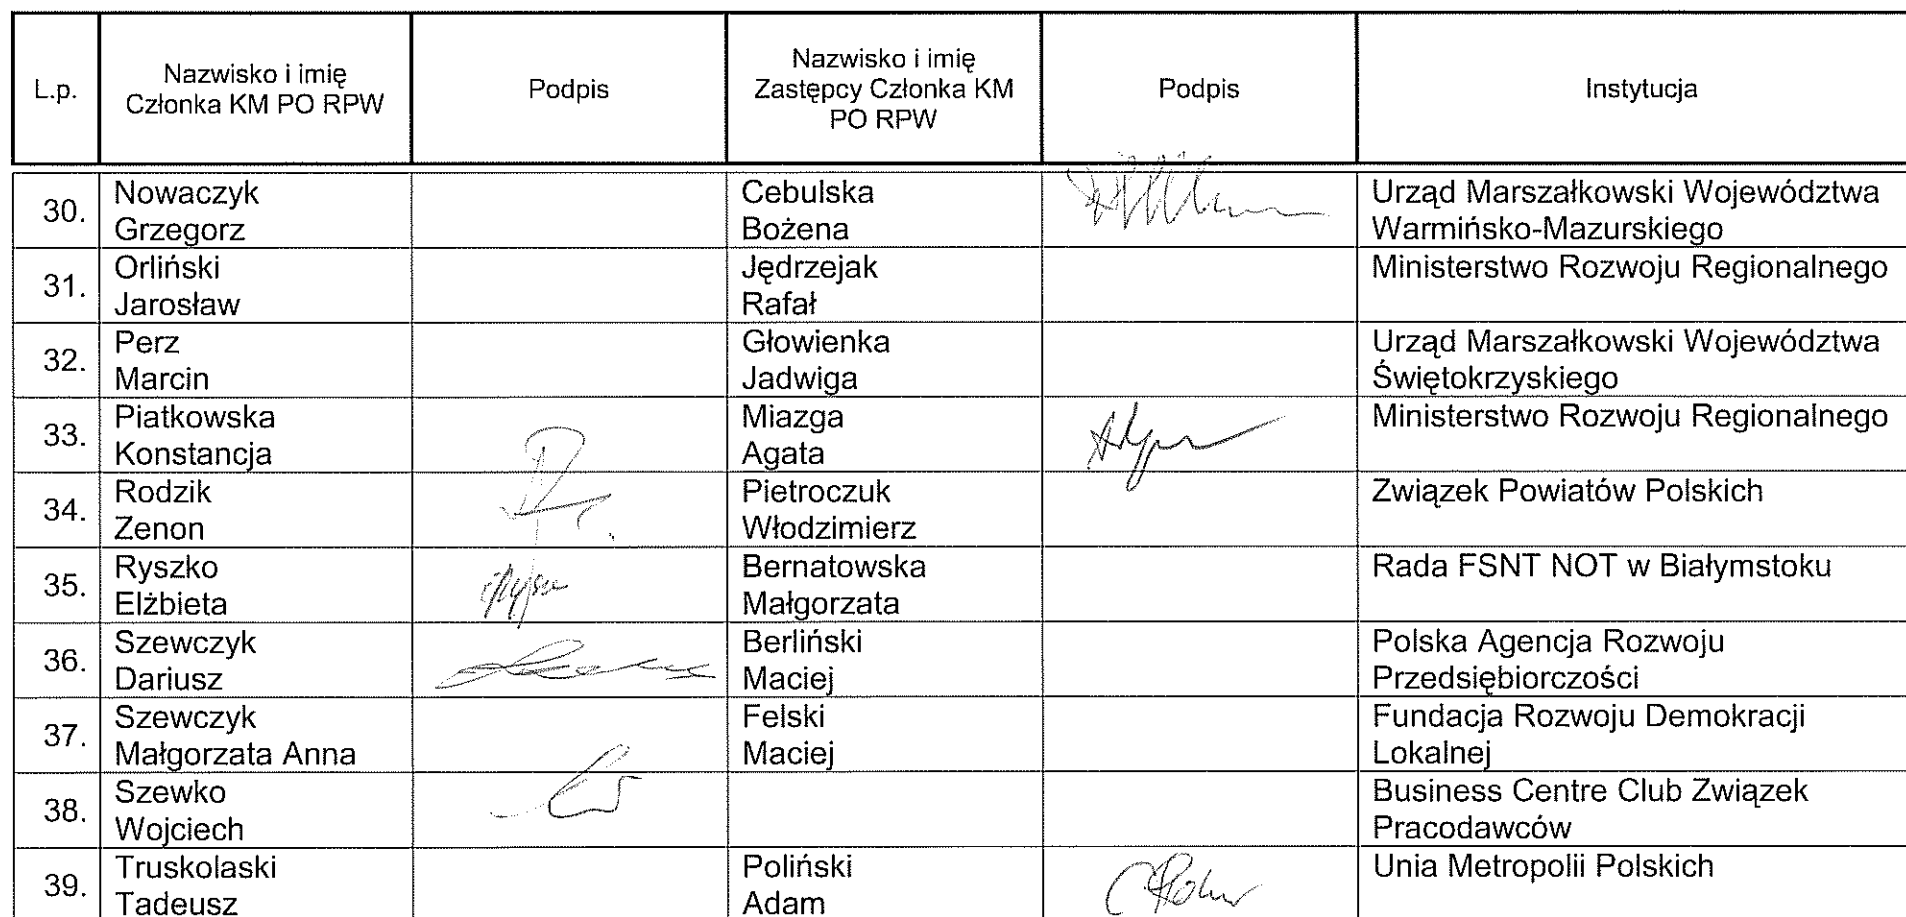 L.p.
Nazwisko i imię
Członka KM PO RPW
Podpis
Nazwisko i imię
Zastępcy Członka KM
PO RPW
Podpis
Instytucja
30.
Nowaczyk
Grzegorz
Cebulska
Bożena
Urząd Marszałkowski Województwa
Warmińsko-Mazurskiego
31.
Orliński
Jarosław
Jędrzejak
Rafał
Ministerstwo Rozwoju Regionalnego
32.
Perz
Marcin
Głowienka
Jadwiga
Urząd Marszałkowski Województwa
Świętokrzyskiego
33.
Piatkowska
Konstancja
Miazga
Agata
Ministerstwo Rozwoju Regionalnego
34.
Rodzik
Zenon
Pietroczuk
Włodzimierz
Związek Powiatów Polskich
35.
Ryszko
Elżbieta
Bernatowska
Małgorzata
Rada FSNT NOT w Białymstoku
36.
Szewczyk
Dariusz
Berliński
Maciej
Polska Agencja Rozwoju
Przedsiębiorczości
37.
Szewczyk
Małgorzata Anna
Felski
Maciej
Fundacja Rozwoju Demokracji
Lokalnej
38.
Szewko
Wojciech
Business Centre Club Związek
Pracodawców
39.
Truskolaski
Tadeusz
Poliński
Adam
Unia Metropolii Polskich